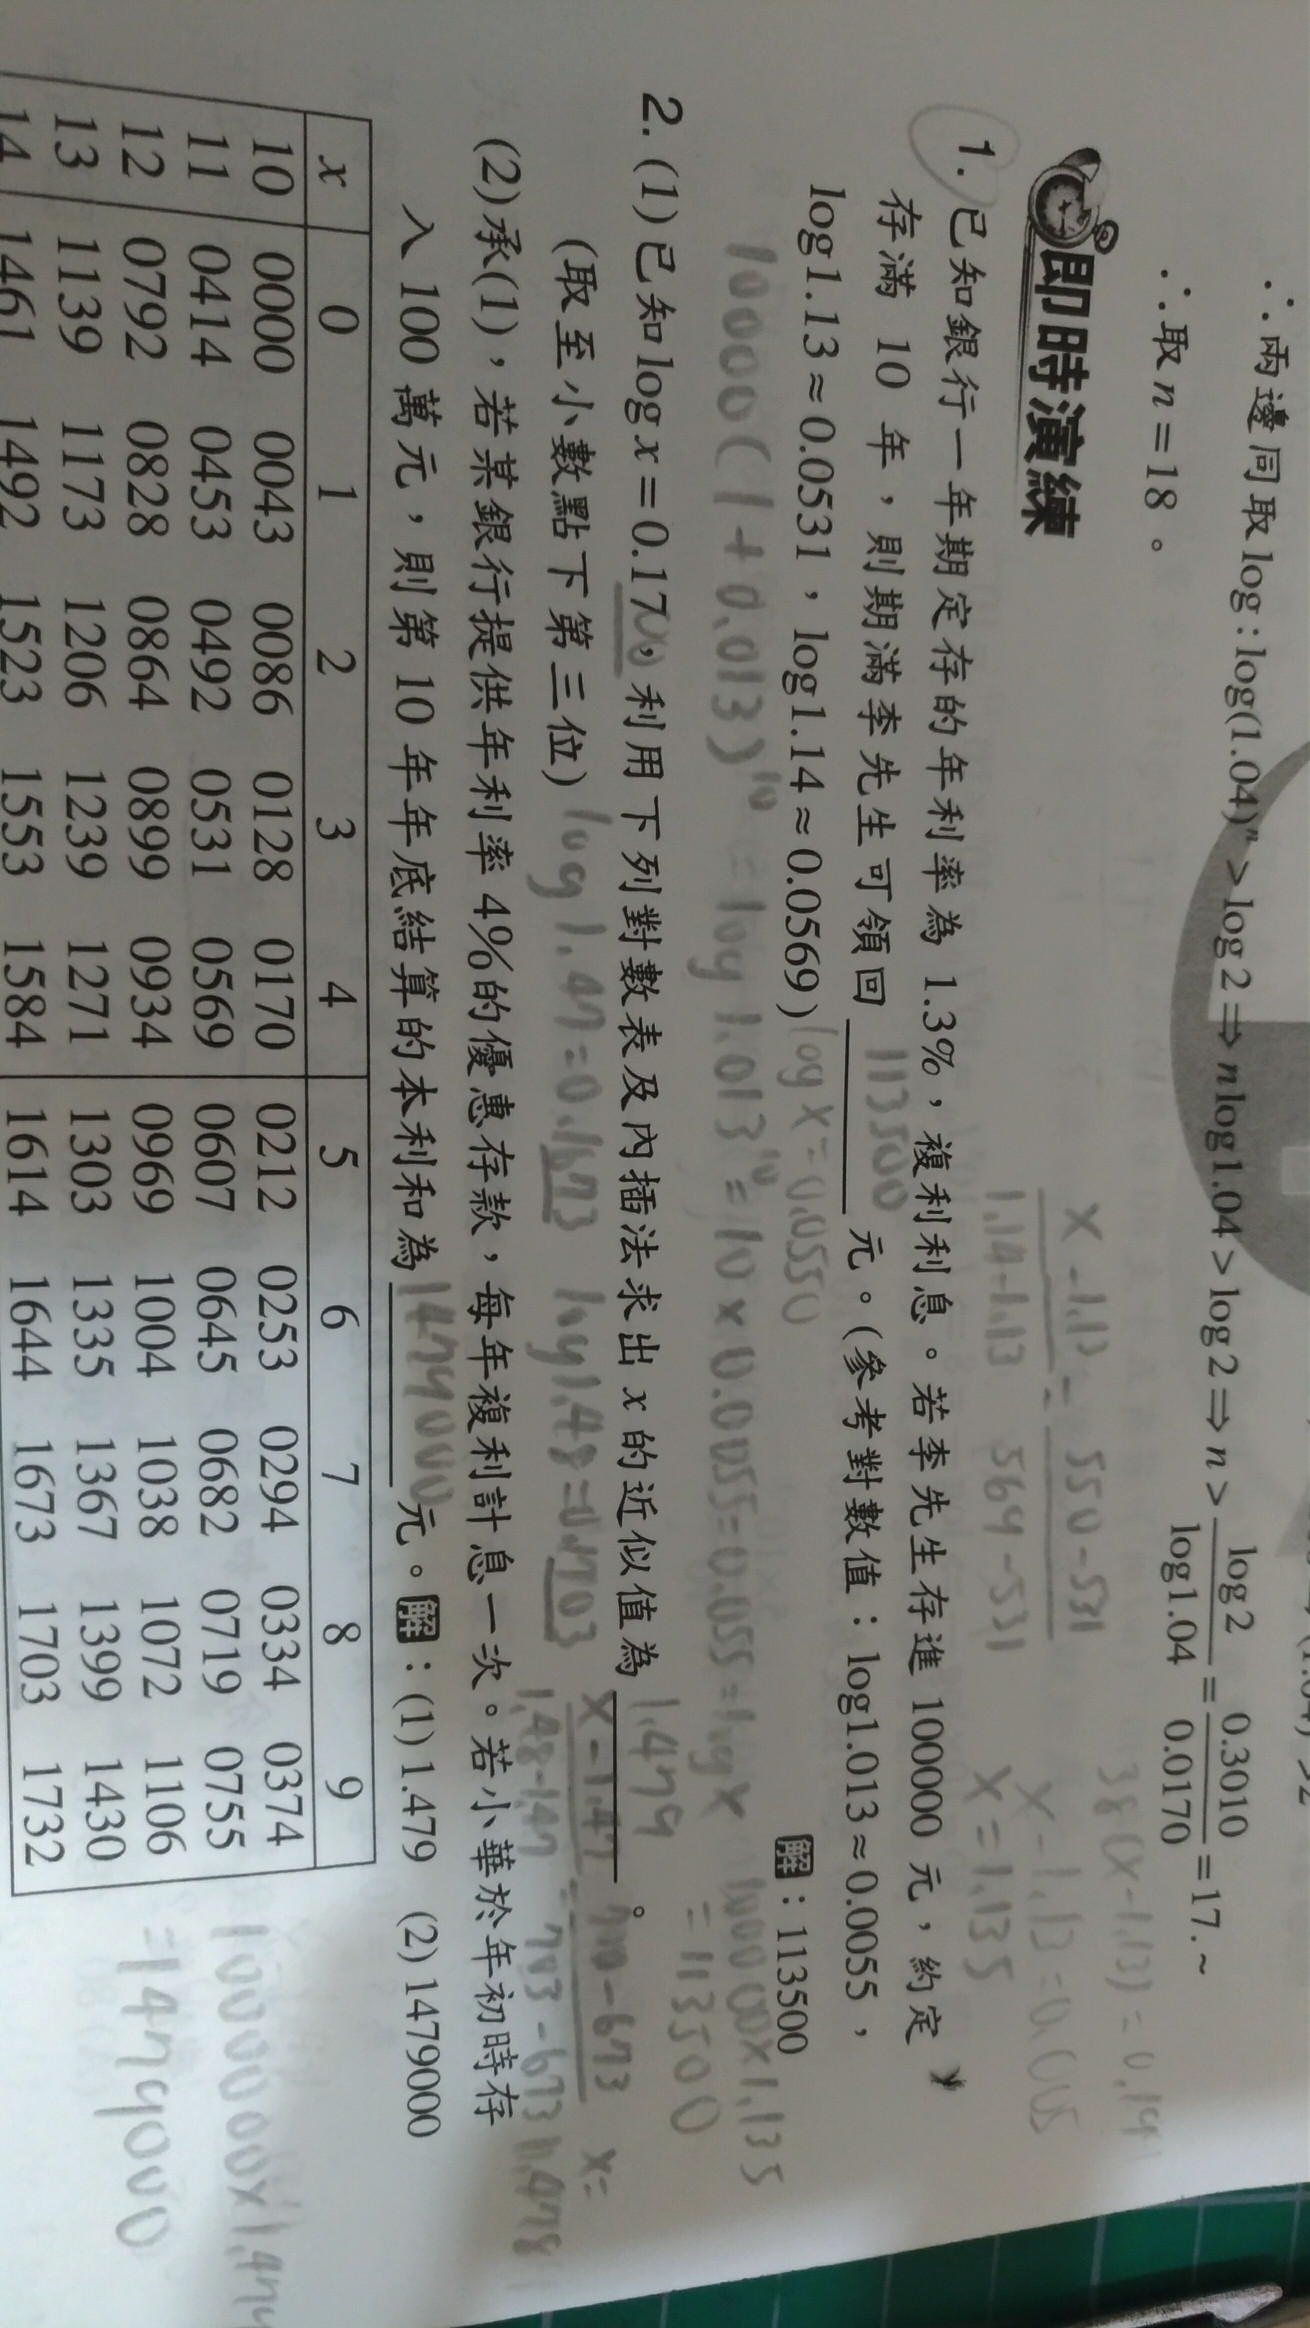 ∴兩邊同取log:log(1.04)ⁿ>log2⇒nlog1.04>log2⇒n>log2/log1.04=0.3010/0.0170=17.~
∴取n=18。
即時演練
1. 已知銀行一年期定存的年利率為 1.3%,複利利息。若李先生存進 100000 元,約定
存滿 10 年,則期滿李先生可領回 113500 元。(參考對數值:log1.013≈0.0055,
log1.13≈0.0531,log1.14≈0.0569)
log x=0.0550
解:113500
x-1.13/1.14-1.13=550-531/569-531
x-1.13=0.005
x=1.135
=log 1.013¹⁰=10×0.0055=0.055=log x
=113500
2. (1)已知log x=0.1700,利用下列對數表及內插法求出 x 的近似值為 1.479。
(取至小數點下第三位)
log 1.47=0.1673 log 1.48=0.1703
x-1.47/1.48-1.47=700-673/703-673
(2)承(1),若某銀行提供年利率 4%的優惠存款,每年複利計息一次。若小華於年初時存
入 100 萬元,則第 10 年年底結算的本利和為 1479000 元。解:(1) 1.479 (2) 1479000
x 0 1 2 3 4 5 6 7 8 9
10 0000 0043 0086 0128 0170 0212 0253 0294 0334 0374
11 0414 0453 0492 0531 0569 0607 0645 0682 0719 0755
12 0792 0828 0864 0899 0934 0969 1004 1038 1072 1106
13 1139 1173 1206 1239 1271 1303 1335 1367 1399 1430
14 1461 1492 1523 1553 1584 1614 1644 1673 1703 1732
=1479000